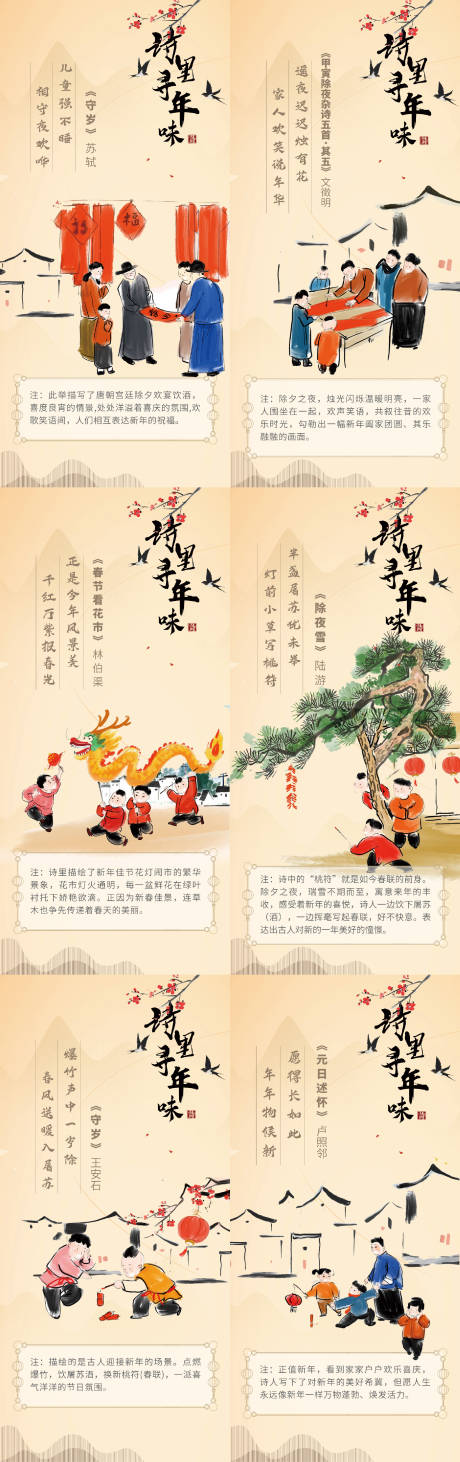 诗里寻年味
《守岁》苏轼
儿童强不睡
相守夜欢哗
福
注：此举描写了唐朝宫廷除夕欢宴饮酒，
喜度良宵的情景,处处洋溢着喜庆的氛围,欢
歌笑语间，人们相互表达新年的祝福。
诗里寻年味
《甲寅除夜杂诗五首·其五》文徵明
遥夜迟迟烛有花
家人欢笑说年华
注：除夕之夜，烛光闪烁温暖明亮，一家
人围坐在一起，欢声笑语，共叙往昔的欢
乐时光，勾勒出一幅新年阖家团圆、其乐
融融的画面。
诗里寻年味
《春节看花市》林伯渠
正是今年风景美
千红万紫报春光
注：诗里描绘了新年佳节花灯闹市的繁华
景象，花市灯火通明，每一盆鲜花在绿叶
衬托下娇艳欲滴。正因为新春佳景，连草
木也争先传递着春天的美丽。
诗里寻年味
《除夜雪》陆游
半盏屠苏犹未举
灯前小草写桃符
注：诗中的“桃符”就是如今春联的前身。
除夕之夜，瑞雪不期而至，寓意来年的丰
收，感受着新年的喜悦，诗人一边饮下屠苏
（酒），一边挥毫写起春联，好不快意。表
达出古人对新的一年美好的憧憬。
诗里寻年味
《守岁》王安石
爆竹声中一岁除
春风送暖入屠苏
注：描绘的是古人迎接新年的场景。点燃
爆竹，饮屠苏酒，换新桃符(春联)，一派喜
气洋洋的节日氛围。
诗里寻年味
《元日述怀》卢照邻
愿得长如此
年年物候新
注：正值新年，看到家家户户欢乐喜庆，
诗人写下了对新年的美好希冀，但愿人生
永远像新年一样万物蓬勃、焕发活力。